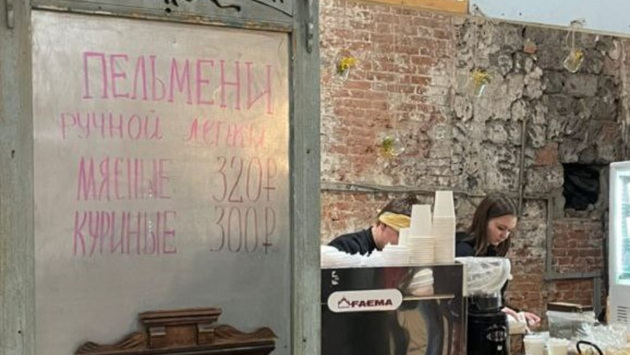 ПЕЛЬМЕНИ
РУЧНОЙ ЛЕПКИ
МЯСНЫЕ 320₽
КУРИНЫЕ 300₽
FAEMA